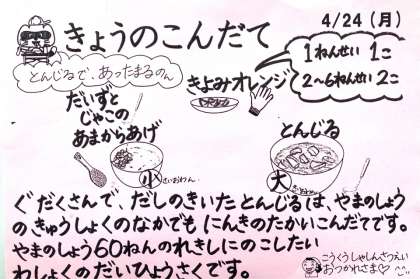 きょうのこんだて
4/24（月）
とんじるで、あったまるのん
きよみオレンジ
1ねんせい 1こ
2〜6ねんせい 2こ
だいずと
じゃこの
あまからあげ
小
さいおわん
とんじる
大
ぐだくさんで、だしのきいたとんじるは、やまのしょう
のきゅうしょくのなかでもにんきのたかいこんだてです。
やまのしょう60ねんのれきしにのこしたい
わしょくのだいひょうさくです。
こうくうしゃしんさつえい
おつかれさま♡